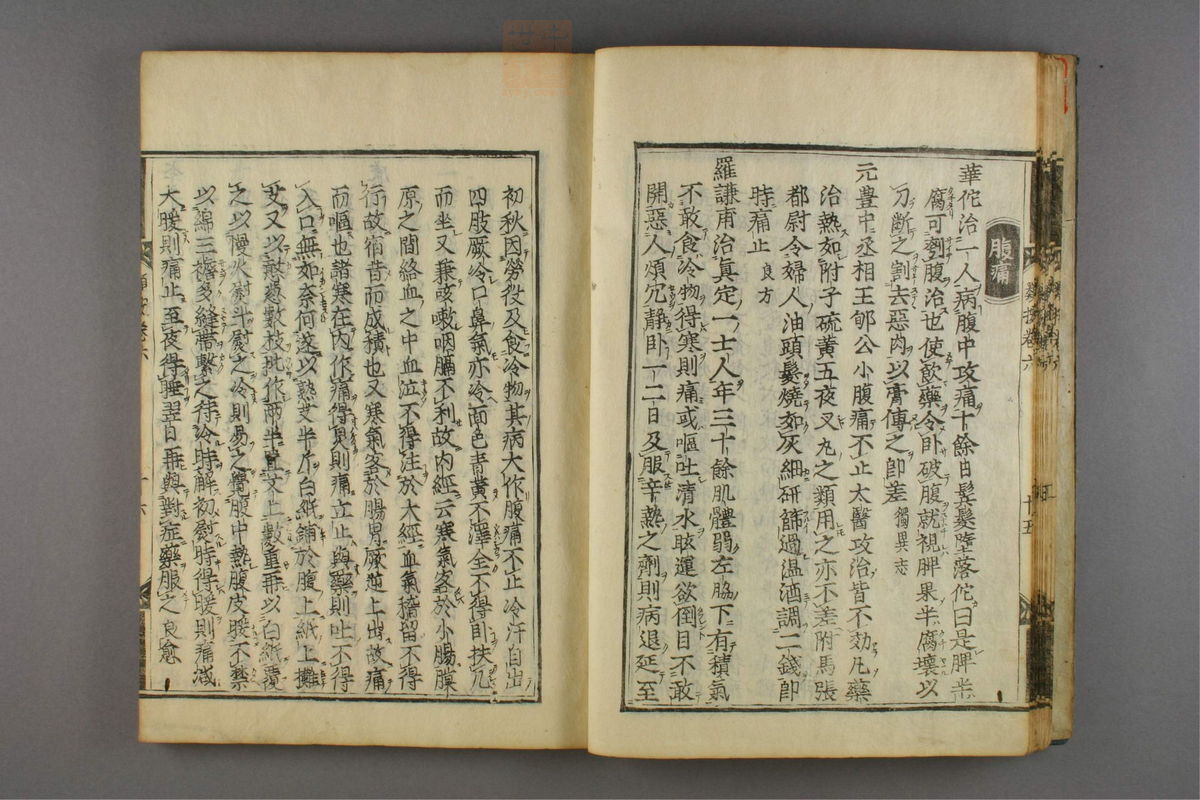 腹痛
華佗治一人病腹中攻痛十餘日鬢髮墮落佗曰是脾半
腐可剖腹治也使飲藥令卧破腹就視脾果半腐壞以
刀斷之割去惡肉以膏傅之即差 獨異志
元豊中丞相王郇公小腹痛不止太醫攻治皆不効凡藥
治熱如附子硫黄五夜叉丸之類用之亦不差附馬張
都尉令婦人油頭髮燒如灰細研篩過温酒調二錢即
時痛止 良方
羅謙甫治真定一士人年三十餘肌體弱左脇下有積氣
不敢食冷物得寒則痛或嘔吐清水眩運欲倒目不敢
開惡人煩冗静卧一二日及服辛熱之劑則病退延至
初秋因勞役及食冷物其病大作腹痛不止冷汗自出
四肢厥冷口鼻氣亦冷面色青黄不澤全不得卧扶几
而坐又兼咳嗽咽膈不利故内經云寒氣客於小腸膜
原之間絡血之中血泣不得注於大經血氣稽留不得
行故宿昔而成積也又寒氣客於腸胃厥逆上出故痛
而嘔也諸寒在内作痛得炅則痛立止與藥則吐不得
入口無如奈何遂以熟艾半斤白紙鋪於腹上紙上攤
艾又以憨葱數枝批作兩半置艾上數重再以白紙覆
之以慢火熨斗熨之冷則易之覺腹中熱腹皮暖不禁
以綿三襜多縫帶繫之待冷時解初熨時得暖則痛減
大暖則痛止至夜得睡翌日再與對症藥服之良愈
十五